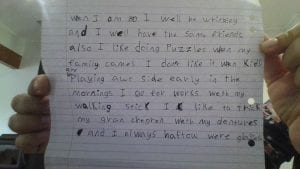 wen I am 80 I well be wrinkley
and I well have the same friends
also I like doing puzzles wen my
family comes I don't like it wen kids
are
Playing awt side early in the
mornings I go for works weth my
walking stick I like to trick
my gran cheldren weth my dentures
and I always haftow were